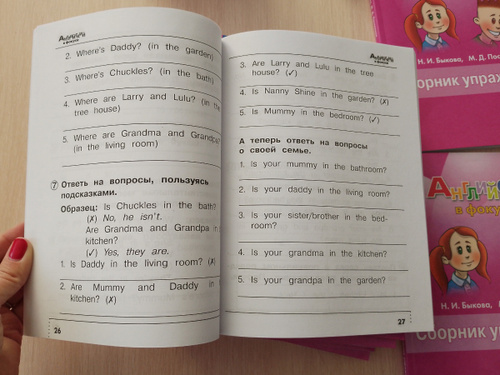 Английский
в фокусе
2. Where's Daddy? (in the garden)
3. Where's Chuckles? (in the bath)
4. Where are Larry and Lulu? (in the
tree house)
5. Where are Grandma and Grandpa?
(in the living room)
7 Ответь на вопросы, пользуясь
подсказками.
Образец: Is Chuckles in the bath?
(✗) No, he isn't.
Are Grandma and Grandpa in
kitchen?
(✓) Yes, they are.
1. Is Daddy in the living room? (✗)
2. Are Mummy and Daddy in
kitchen? (✗)
26
Английский
в фокусе
3. Are Larry and Lulu in the tree
house? (✓)
4. Is Nanny Shine in the garden? (✗)
5. Is Mummy in the bedroom? (✓)
А теперь ответь на вопросы
о своей семье.
1. Is your mummy in the bathroom?
2. Is your daddy in the living room?
3. Is your sister/brother in the bed-
room?
4. Is your grandma in the kitchen?
5. Is your grandpa in the garden?
27
Н. И. Быкова, М. Д. Пос
борник упраж
Английс
в фоку
Н. И. Быкова,
Сборник уп